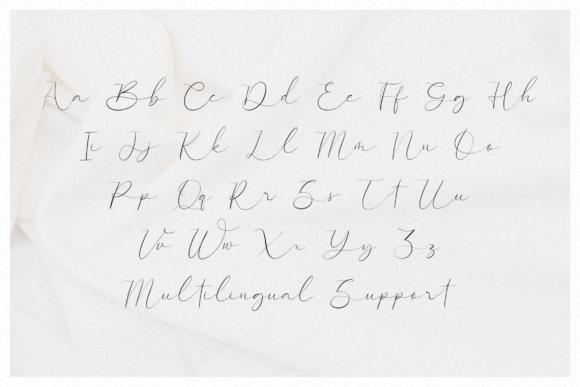 Aa Bb Cc Dd Ee Ff Gg Hh
Ii Jj Kk Ll Mm Nn Oo
Pp Qq Rr Ss Tt Uu
Vv Ww Xx Yy Zz
Multilingual Support